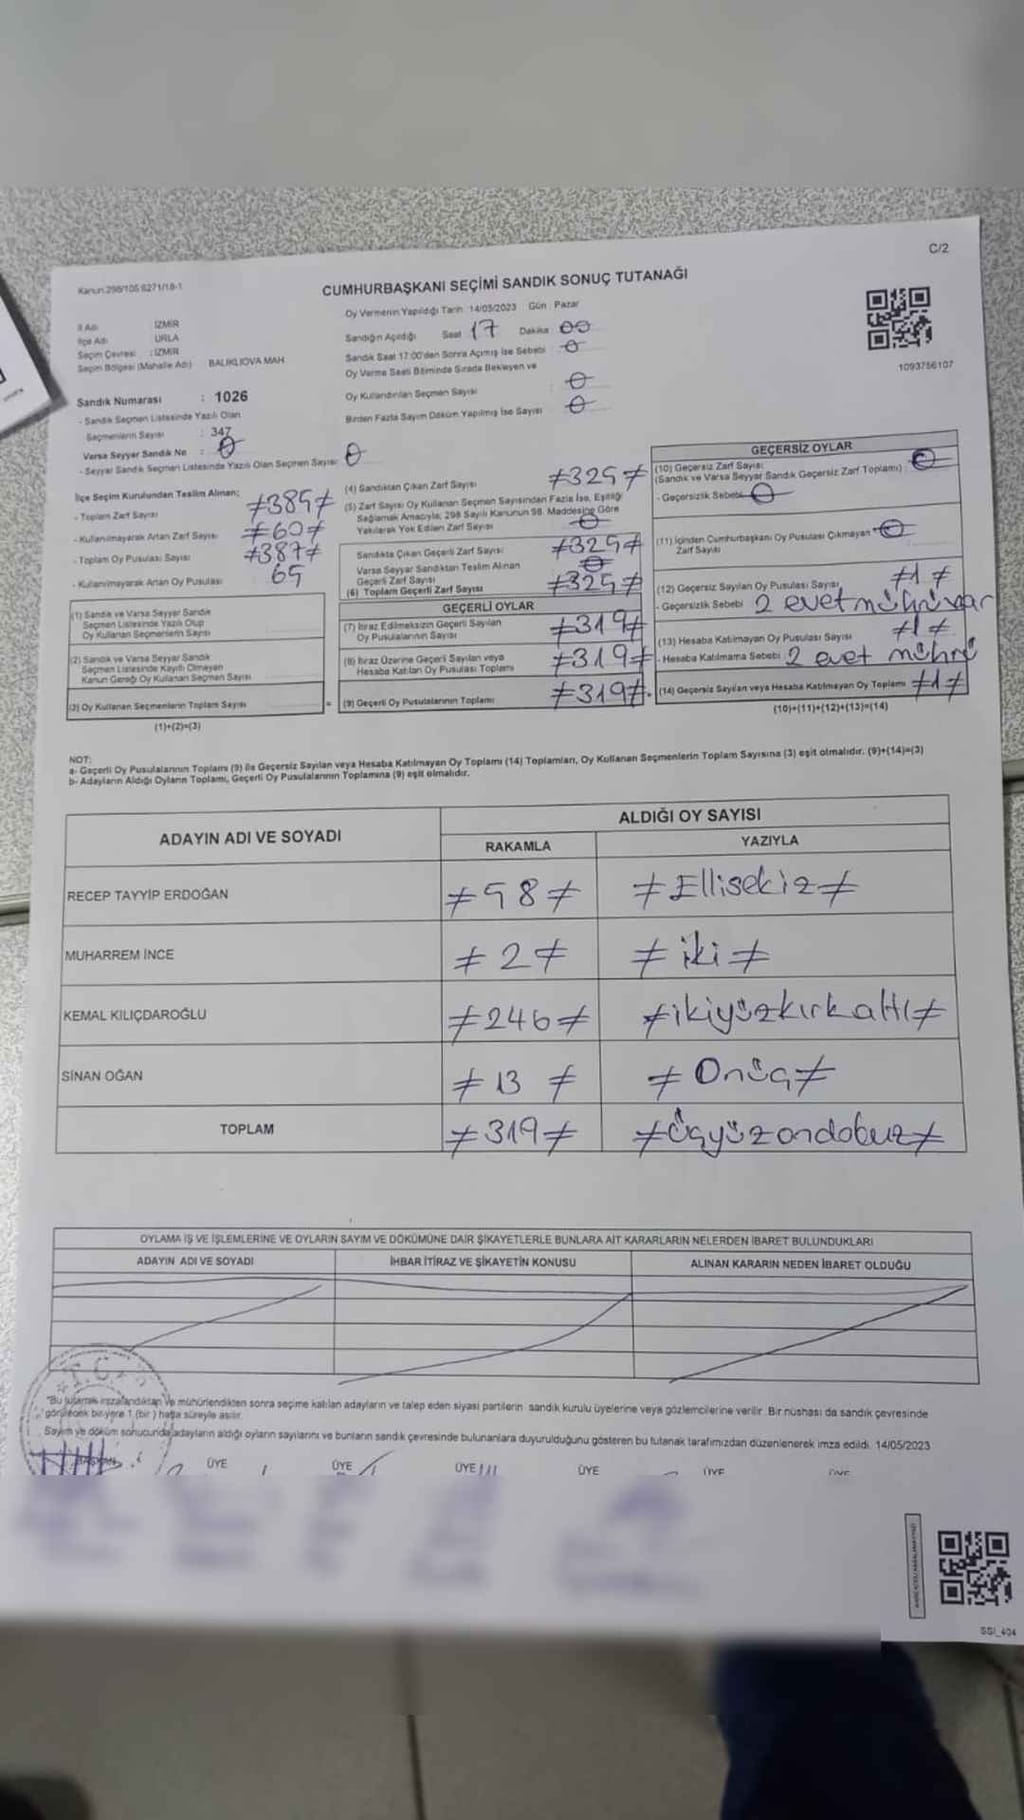 C/2
Kanun:298/105 6271/18-1
CUMHURBAŞKANI SEÇİMİ SANDIK SONUÇ TUTANAĞI
Oy Vermenin Yapıldığı Tarih: 14/05/2023 Gün : Pazar
İl Adı : İZMİR
İlçe Adı : URLA
Seçim Çevresi : İZMİR
Seçim Bölgesi (Mahalle Adı) BALIKLIOVA MAH
Sandığın Açıldığı Saat 17 Dakika 00
Sandık Saat 17:00'den Sonra Açılmış İse Sebebi 0
Oy Verme Saati Bitiminde Sırada Bekleyen ve
Oy Kullandırılan Seçmen Sayısı 0
Birden Fazla Sayım Döküm Yapılmış İse Sayısı 0
1093756107
Sandık Numarası : 1026
- Sandık Seçmen Listesinde Yazılı Olan
Seçmenlerin Sayısı : 347
Varsa Seyyar Sandık No : 0
- Seyyar Sandık Seçmen Listesinde Yazılı Olan Seçmen Sayısı: 0
İlçe Seçim Kurulundan Teslim Alınan;
- Toplam Zarf Sayısı ≠385≠
- Kullanılmayarak Artan Zarf Sayısı ≠60≠
- Toplam Oy Pusulası Sayısı ≠387≠
- Kullanılmayarak Artan Oy Pusulası 65
(1) Sandık ve Varsa Seyyar Sandık
Seçmen Listesinde Yazılı Olup
Oy Kullanan Seçmenlerin Sayısı
(2) Sandık ve Varsa Seyyar Sandık
Seçmen Listesinde Kayıtlı Olmayan
Kanun Gereği Oy Kullanan Seçmen Sayısı
(3) Oy Kullanan Seçmenlerin Toplam Sayısı =
(1)+(2)=(3)
(4) Sandıktan Çıkan Zarf Sayısı ≠325≠
(5) Zarf Sayısı Oy Kullanan Seçmen Sayısından Fazla İse, Eşitliği
Sağlamak Amacıyla; 298 Sayılı Kanunun 98. Maddesine Göre
Yakılarak Yok Edilen Zarf Sayısı 0
Sandıkta Çıkan Geçerli Zarf Sayısı ≠325≠
Varsa Seyyar Sandıktan Teslim Alınan
Geçerli Zarf Sayısı 0
(6) Toplam Geçerli Zarf Sayısı ≠325≠
GEÇERLİ OYLAR
(7) İtiraz Edilmeksizin Geçerli Sayılan
Oy Pusulalarının Sayısı ≠319≠
(8) İtiraz Üzerine Geçerli Sayılan veya
Hesaba Katılan Oy Pusulası Toplamı ≠319≠
(9) Geçerli Oy Pusulalarının Toplamı ≠319≠
GEÇERSİZ OYLAR
(10) Geçersiz Zarf Sayısı:
(Sandık ve Varsa Seyyar Sandık Geçersiz Zarf Toplamı) 0
- Geçersizlik Sebebi 0
(11) İçinden Cumhurbaşkanı Oy Pusulası Çıkmayan 0
Zarf Sayısı
(12) Geçersiz Sayılan Oy Pusulası Sayısı ≠1≠
- Geçersizlik Sebebi 2 evet mührü var
(13) Hesaba Katılmayan Oy Pusulası Sayısı ≠1≠
- Hesaba Katılmama Sebebi 2 evet mührü
(14) Geçersiz Sayılan veya Hesaba Katılmayan Oy Toplamı ≠1≠
(10)+(11)+(12)+(13)=(14)
NOT:
a- Geçerli Oy Pusulalarının Toplamı (9) ile Geçersiz Sayılan veya Hesaba Katılmayan Oy Toplamı (14) Toplamları, Oy Kullanan Seçmenlerin Toplam Sayısına (3) eşit olmalıdır. (9)+(14)=(3)
b- Adayların Aldığı Oyların Toplamı, Geçerli Oy Pusulalarının Toplamına (9) eşit olmalıdır.
ADAYIN ADI VE SOYADI
ALDIĞI OY SAYISI
RAKAMLA YAZIYLA
RECEP TAYYİP ERDOĞAN ≠58≠ ≠Ellisekiz≠
MUHARREM İNCE ≠2≠ ≠iki≠
KEMAL KILIÇDAROĞLU ≠246≠ ≠ikiyüzkırkaltı≠
SİNAN OĞAN ≠13≠ ≠Onüç≠
TOPLAM ≠319≠ ≠Üçyüzondokuz≠
OYLAMA İŞ VE İŞLEMLERİNE VE OYLARIN SAYIM VE DÖKÜMÜNE DAİR ŞİKAYETLERLE BUNLARA AİT KARARLARIN NELERDEN İBARET BULUNDUKLARI
ADAYIN ADI VE SOYADI İHBAR İTİRAZ VE ŞİKAYETİN KONUSU ALINAN KARARIN NEDEN İBARET OLDUĞU
T.C.
"Bu tutanak imzalandıktan ve mühürlendikten sonra seçime katılan adayların ve talep eden siyasi partilerin sandık kurulu üyelerine veya gözlemcilerine verilir. Bir nüshası da sandık çevresinde
görülecek bir yere 1 (bir) hafta süreyle asılır.
Sayım ve döküm sonucunda adayların aldığı oyların sayılarını ve bunların sandık çevresinde bulunanlara duyurulduğunu gösteren bu tutanak tarafımızdan düzenlenerek imza edildi. 14/05/2023
BAŞKAN ÜYE ÜYE ÜYE ÜYE ÜYE ÜYE
SSI_404